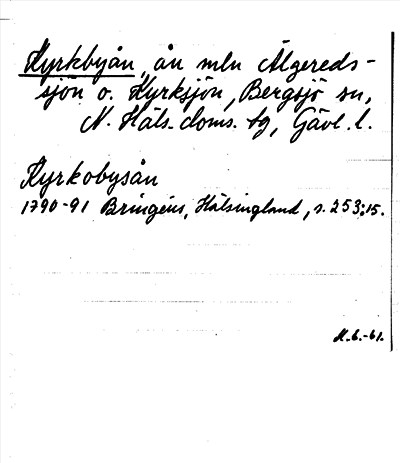 Kyrkbyån, ån mln Älgereds-
sjön o. Kyrksjön, Bergsjö sn,
N. Häls. doms. tg, Gävl. l.
Kyrkobysån
1790-91 Bringéus, Hälsingland, s. 253:15.
M.b.-61.